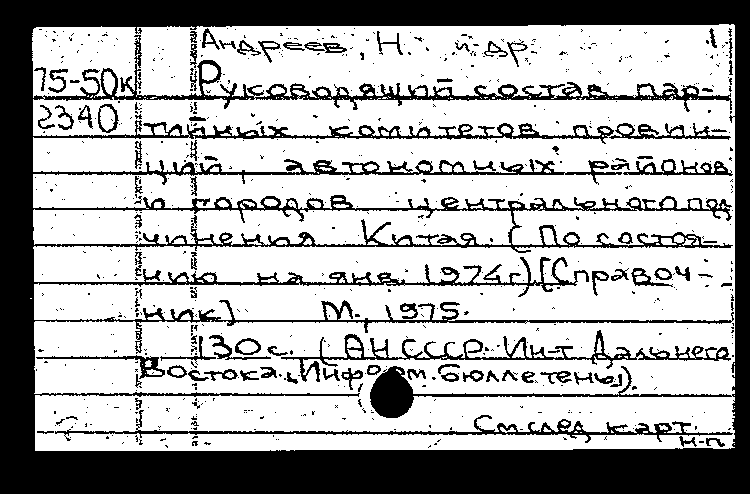 Андреев, Н. и др. 1
75-50к Руководящий состав пар-
2340 тийных комитетов провин-
ций, автономных районов
и городов центрального под
чинения Китая. (По состоя-
нию на янв. 1974г.) [Справоч-
ник] М., 1975.
130 с. (АН СССР. Ин-т Дальнего
Востока. Информ. бюллетены).
См. след. карт.
н-п